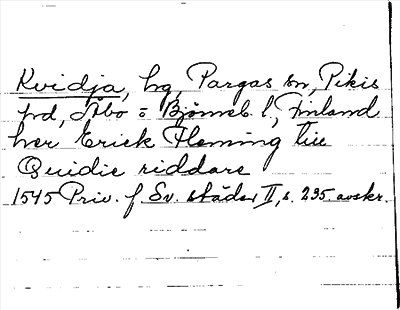 Kvidja, hg, Pargas sn, Pikis
hd, Åbo = Björneb. l., Finland
her Erick Fleming till
Quidie riddare
1545 Priv. f. Sv. städer II, s. 235. avskr.